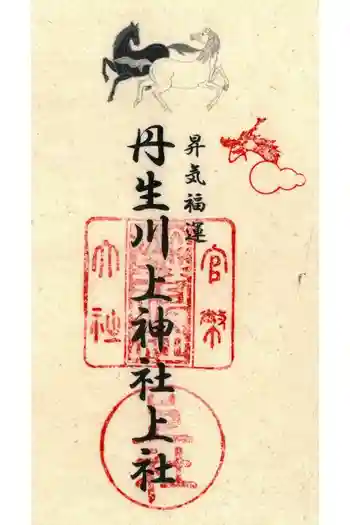 昇気福運
丹生川上神社上社
官幣
大社